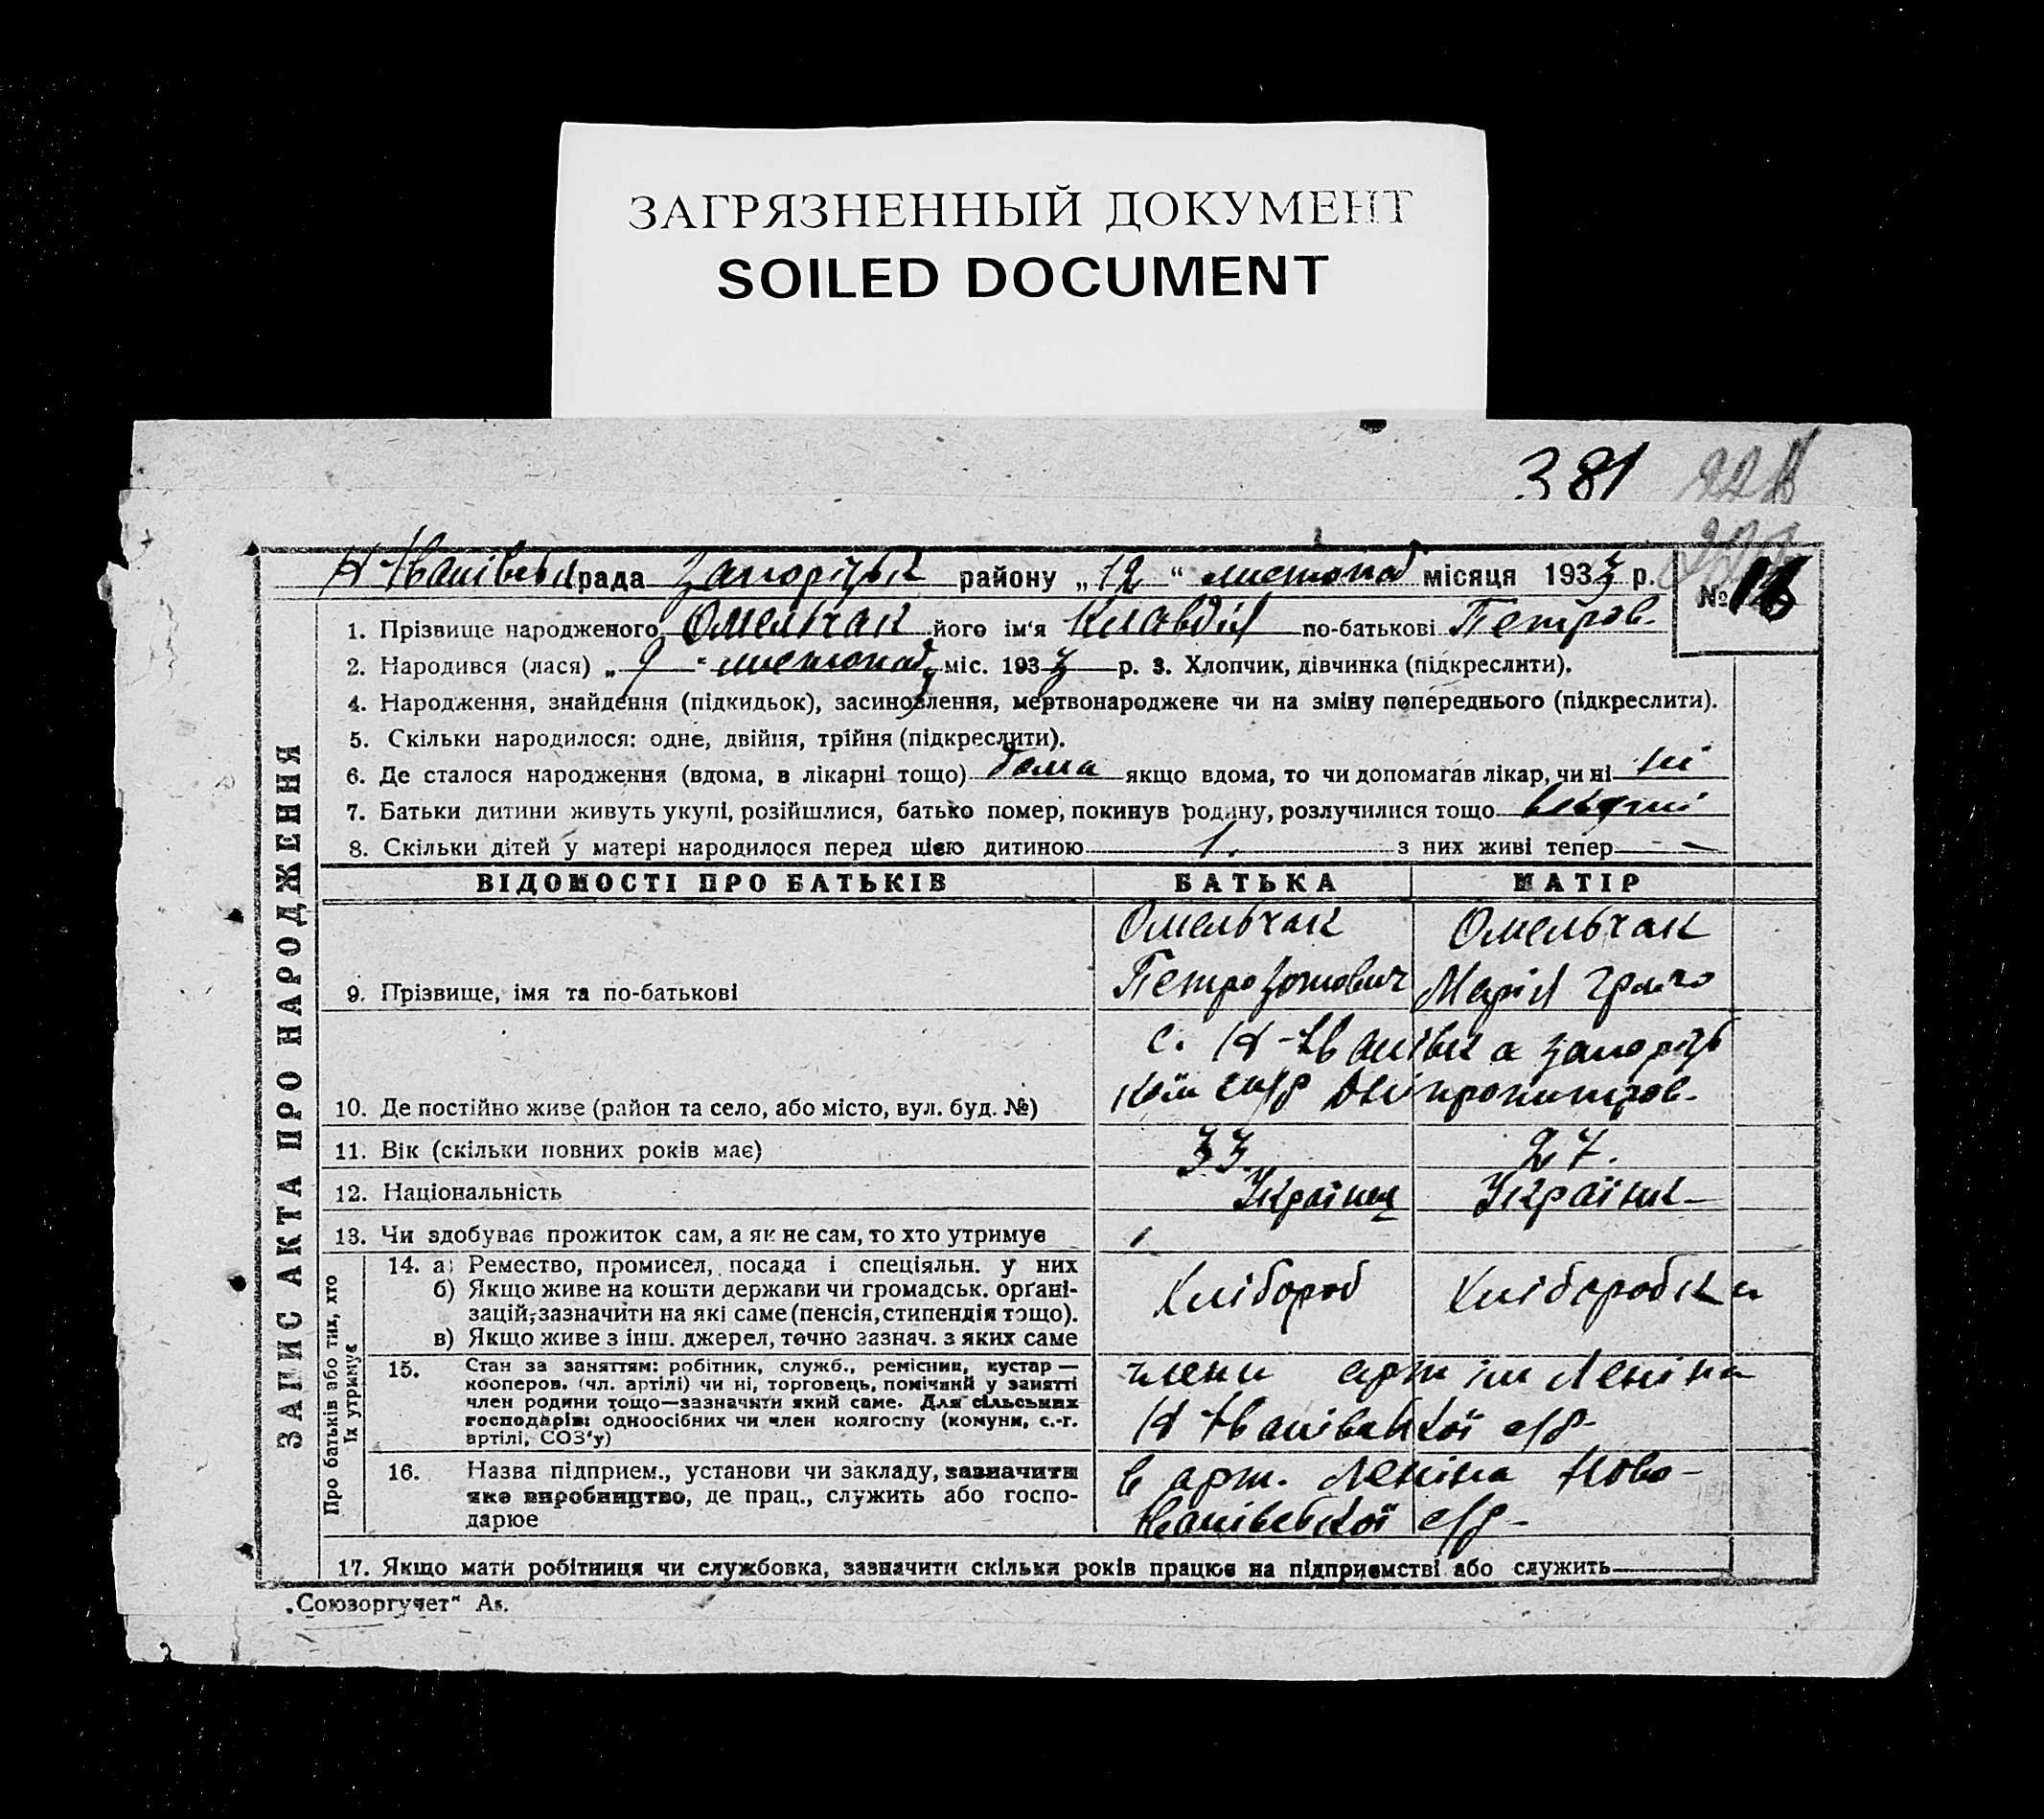 ЗАГРЯЗНЕННЫЙ ДОКУМЕНТ
SOILED DOCUMENT
381
Н-Іванівська рада Запорізьк району „12“ листопад місяця 1933 р. №
1. Прізвище народженого Омельчак його ім‘я Клавдія по-батькові Петров.
2. Народився (лася) „9“ листопад міс. 1933 р. 3. Хлопчик, дівчинка (підкреслити).
4. Народження, знайдення (підкидьок), засиновлення, мертвонароджене чи на зміну попереднього (підкреслити).
5. Скільки народилося: одне, двійня, трійня (підкреслити).
6. Де сталося народження (вдома, в лікарні тощо) дома якщо вдома, то чи допомагав лікар, чи ні ні
7. Батьки дитини живуть укупі, розійшлися, батько помер, покинув родину, розлучилися тощо
8. Скільки дітей у матері народилося перед цією дитиною 1. з них живі тепер —
ЗАПИС АКТА ПРО НАРОДЖЕННЯ
ВІДОМОСТІ ПРО БАТЬКІВ БАТЬКА МАТІР
Омельчак Омельчак
9. Прізвище, імя та по-батькові Петро Зотович Марія
с. Н-Іванівка Запорізь
10. Де постійно живе (район та село, або місто, вул. буд. №) кої Дніпропитров.
11. Вік (скільки повних років має) 33 27.
12. Національність Українц Українк
13. Чи здобуває прожиток сам, а як не сам, то хто утримує
Про батьків або тих, хто
їх утримує
14. а) Ремество, промисел, посада і спеціяльн. у них
б) Якщо живе на кошти держави чи громадськ. орґані-
зацій, зазначити на які саме (пенсія, стипендія тощо).
в) Якщо живе з інш. джерел, точно зазнач. з яких саме
Хлібороб Хліборобка
15. Стан за заняттям: робітник, служб., ремісник, кустар —
кооперов. (чл. артілі) чи ні, торговець, помічний у занятті
член родини тощо—зазначити який саме. Для сільських
господарів: одноосібних чи член колгоспу (комуни, с.-г.
артілі, СОЗ‘у)
члени арт ім Леніна
Н Іванівської с/р
16. Назва підприєм., установи чи закладу, зазначити
яке виробництво, де прац., служить або госпо-
дарює
в арт. Леніна Ново-
Іванівської с/р
17. Якщо мати робітниця чи службовка, зазначити скільки років працює на підприємстві або служить
„Союзоргучет“